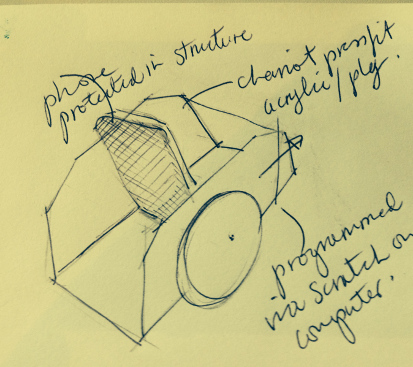 phone
protected in structure
chariot pressfit
acrylic / ply.
programmed
via Scratch on
computer.